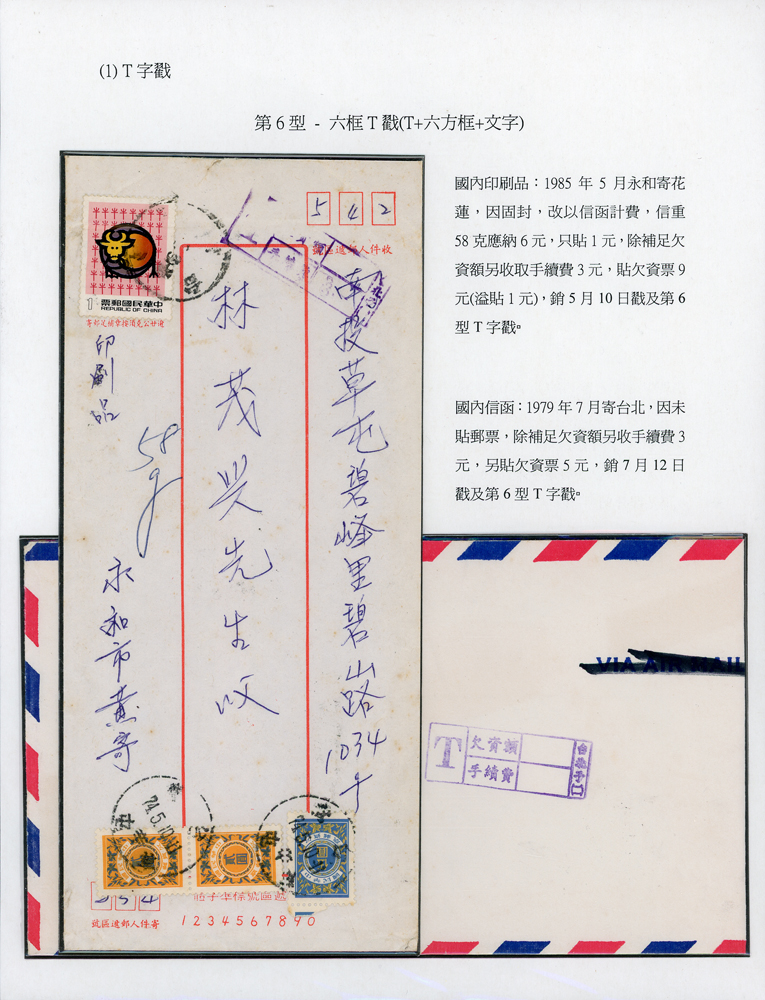 (1) T 字戳
第 6 型 - 六框 T 戳(T+六方框+文字)
國內印刷品：1985 年 5 月永和寄花
蓮，因固封，改以信函計費，信重
58 克應納 6 元，只貼 1 元，除補足欠
資額另收取手續費 3 元，貼欠資票 9
元(溢貼 1 元)，銷 5 月 10 日戳及第 6
型 T 字戳。
國內信函：1979 年 7 月寄台北，因未
貼郵票，除補足欠資額另收手續費 3
元，另貼欠資票 5 元，銷 7 月 12 日
戳及第 6 型 T 字戳。
542
收件人郵遞區號
南投草屯碧峰里碧山路1034号
林茂興先生收
1
票郵國民華中
REPUBLIC OF CHINA
印刷品
58g
永和市黃寄
74.5.10
號區遞郵人件寄
1 2 3 4 5 6 7 8 9 0
VIA AIR MAIL
T
欠資額
手續費